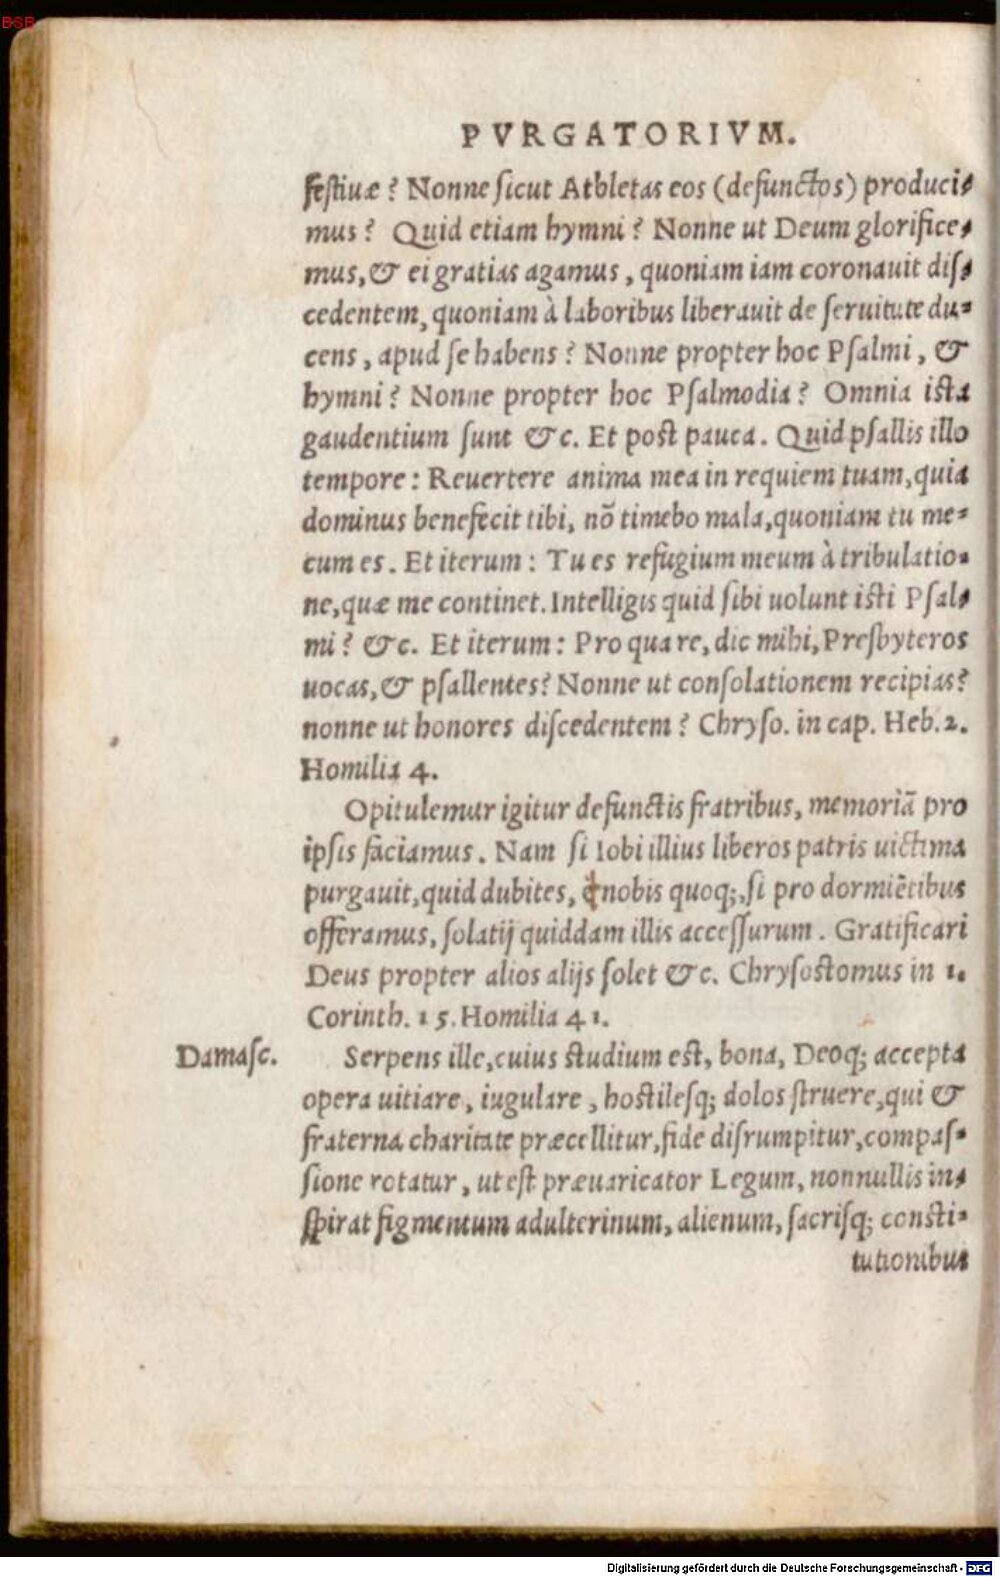 BSB
PVRGATORIVM.
festiuæ? Nonne sicut Athletas eos (defunctos) produci-
mus? Quid etiam hymni? Nonne ut Deum glorifice-
mus, & ei gratias agamus, quoniam iam coronauit dis-
cedentem, quoniam à laboribus liberauit de seruitute du-
cens, apud se habens? Nonne propter hoc Psalmi, &
hymni? Nonne propter hoc Psalmodia? Omnia ista
gaudentium sunt &c. Et post pauca. Quid psallis illo
tempore: Reuertere anima mea in requiem tuam, quia
dominus benefecit tibi, nõ timebo mala, quoniam tu me-
cum es. Et iterum: Tu es refugium meum à tribulatio-
ne, quæ me continet. Intelligis quid sibi uolunt isti Psal-
mi? &c. Et iterum: Pro qua re, dic mihi, Presbyteros
uocas, & psallentes? Nonne ut consolationem recipias?
nonne ut honores discedentem? Chryso. in cap. Heb. 2.
Homilia 4.
Opitulemur igitur defunctis fratribus, memoriã pro
ipsis faciamus. Nam si Iobi illius liberos patris uictima
purgauit, quid dubites, nobis quoq;, si pro dormiẽtibus
offeramus, solatij quiddam illis accessurum. Gratificari
Deus propter alios alijs solet &c. Chrysostomus in 1.
Corinth. 15. Homilia 41.
Damasc. Serpens ille, cuius studium est, bona, Deoq; accepta
opera uitiare, iugulare, hostilesq; dolos struere, qui &
fraterna charitate præcellitur, fide disrumpitur, compas-
sione rotatur, ut est præuaricator Legum, nonnullis in-
spirat figmentum adulterinum, alienum, sacrisq; consti-
tutionibus
Digitalisierung gefördert durch die Deutsche Forschungsgemeinschaft - DFG